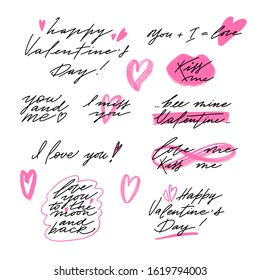 happy
Valentine's
Day!
you + I = love
Kiss
me
you
and
me
I miss
you
bee mine
Valentine..
I love you!
love me
Kiss me
love
you
to the
moon
and
back
Happy
Valentine's
Day!
shutterstock.com · 1619794003